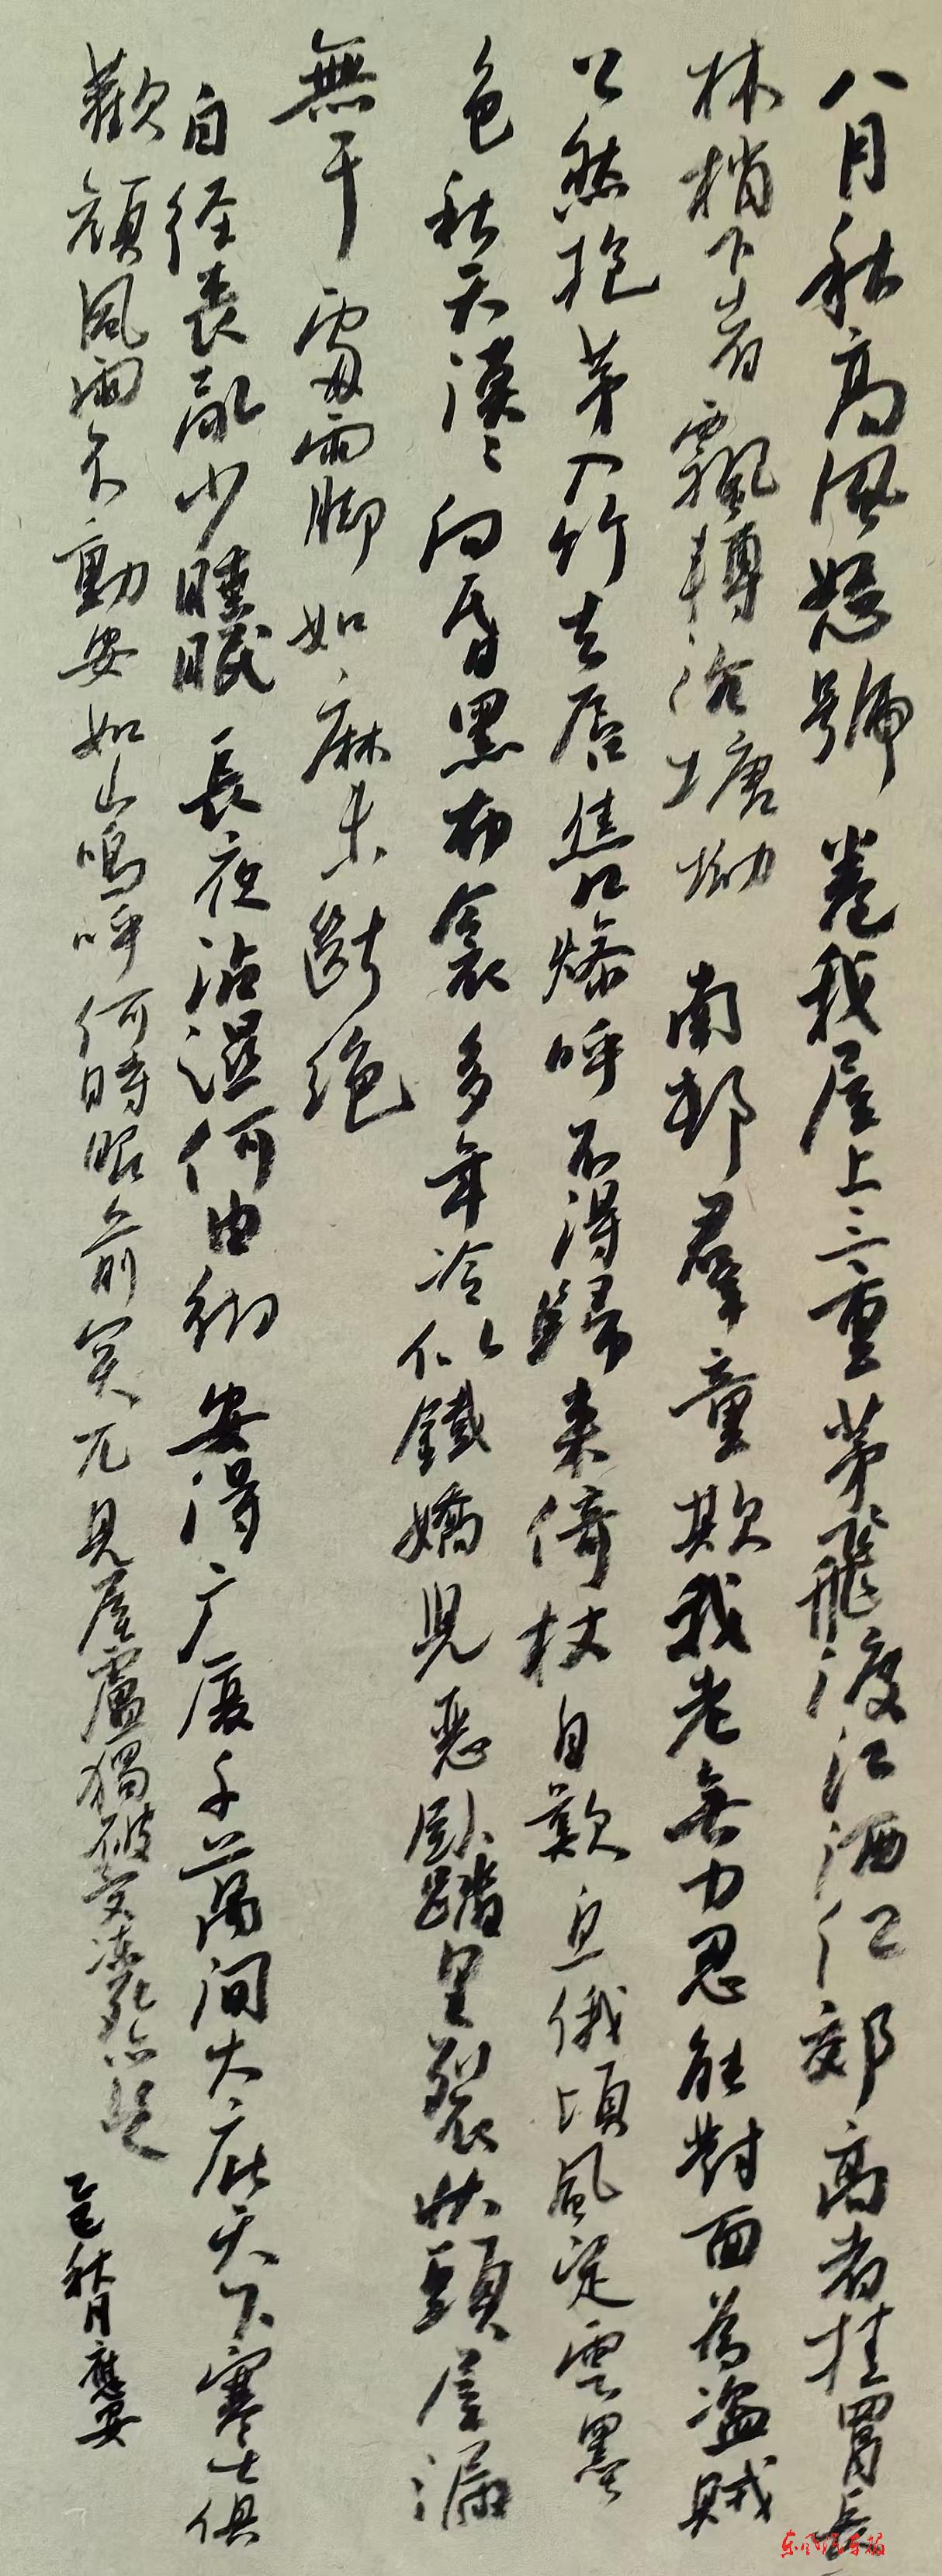 八月秋高風怒號卷我屋上三重茅飛渡江洒江郊高者挂罥長
林梢下者飄轉沉塘坳南邨羣童欺我老無力忍能對面為盜賊
公然抱茅入竹去唇焦口燥呼不得歸来倚杖自歎息俄頃風定雲墨
色秋天漠〻向昏黑布衾多年冷似鐵嬌児惡臥踏里裂牀頭屋漏
無干處雨脚如麻未斷絕
自经丧亂少睡眠長夜沾濕何由徹安得广厦千萬间大庇天下寒士俱
歡顏風雨不動安如山嗚呼何時眼前突兀見屋廬獨破受凍死亦足
秋月
东风汽车报